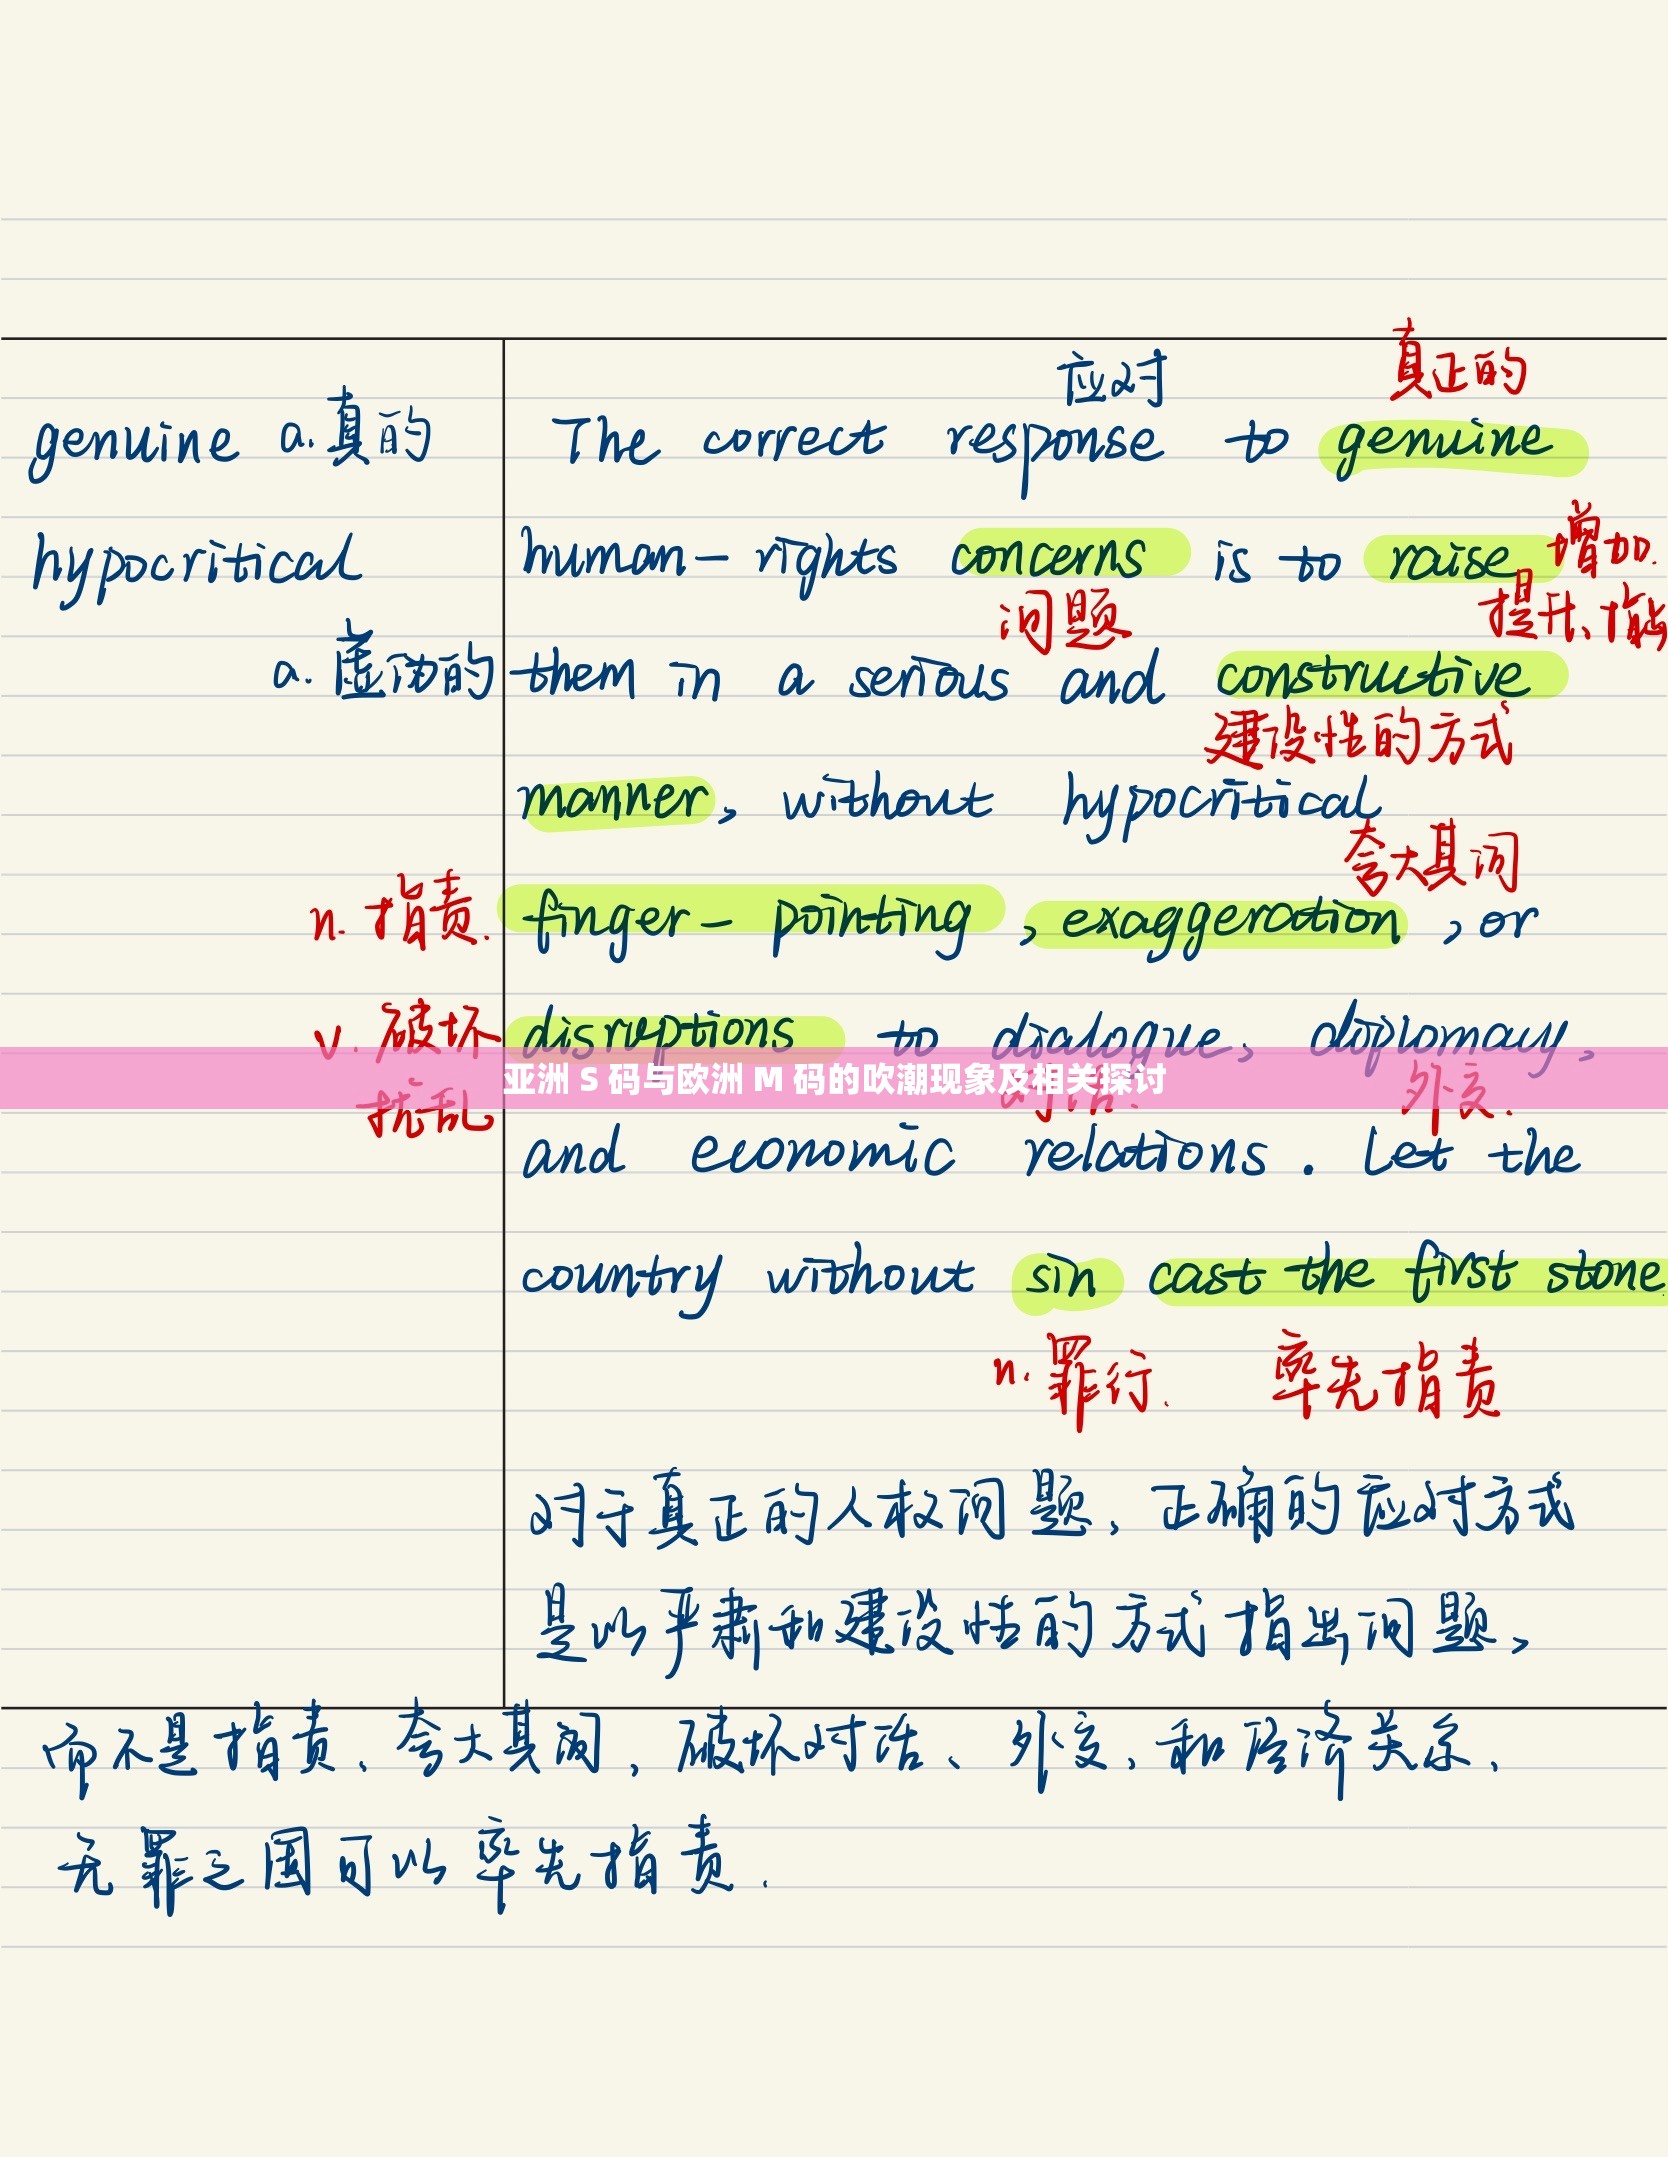 应对 真正的
genuine a.真的 The correct response to genuine
hypocritical human-rights concerns is to raise 增加.
问题 提升、指出
a.虚伪的 them in a serious and constructive
建设性的方式
manner, without hypocritical
夸大其词
n.指责. finger-pointing, exaggeration, or
v.破坏 disruptions to dialogue, diplomacy,
亚洲 S 码与欧洲 M 码的吹潮现象及相关探讨
扰乱 对话. 外交.
and economic relations. Let the
country without sin cast the first stone.
n.罪行. 率先指责
对于真正的人权问题,正确的应对方式
是以严肃和建设性的方式指出问题,
而不是指责、夸大其词,破坏对话、外交、和经济关系.
无罪之国可以率先指责.